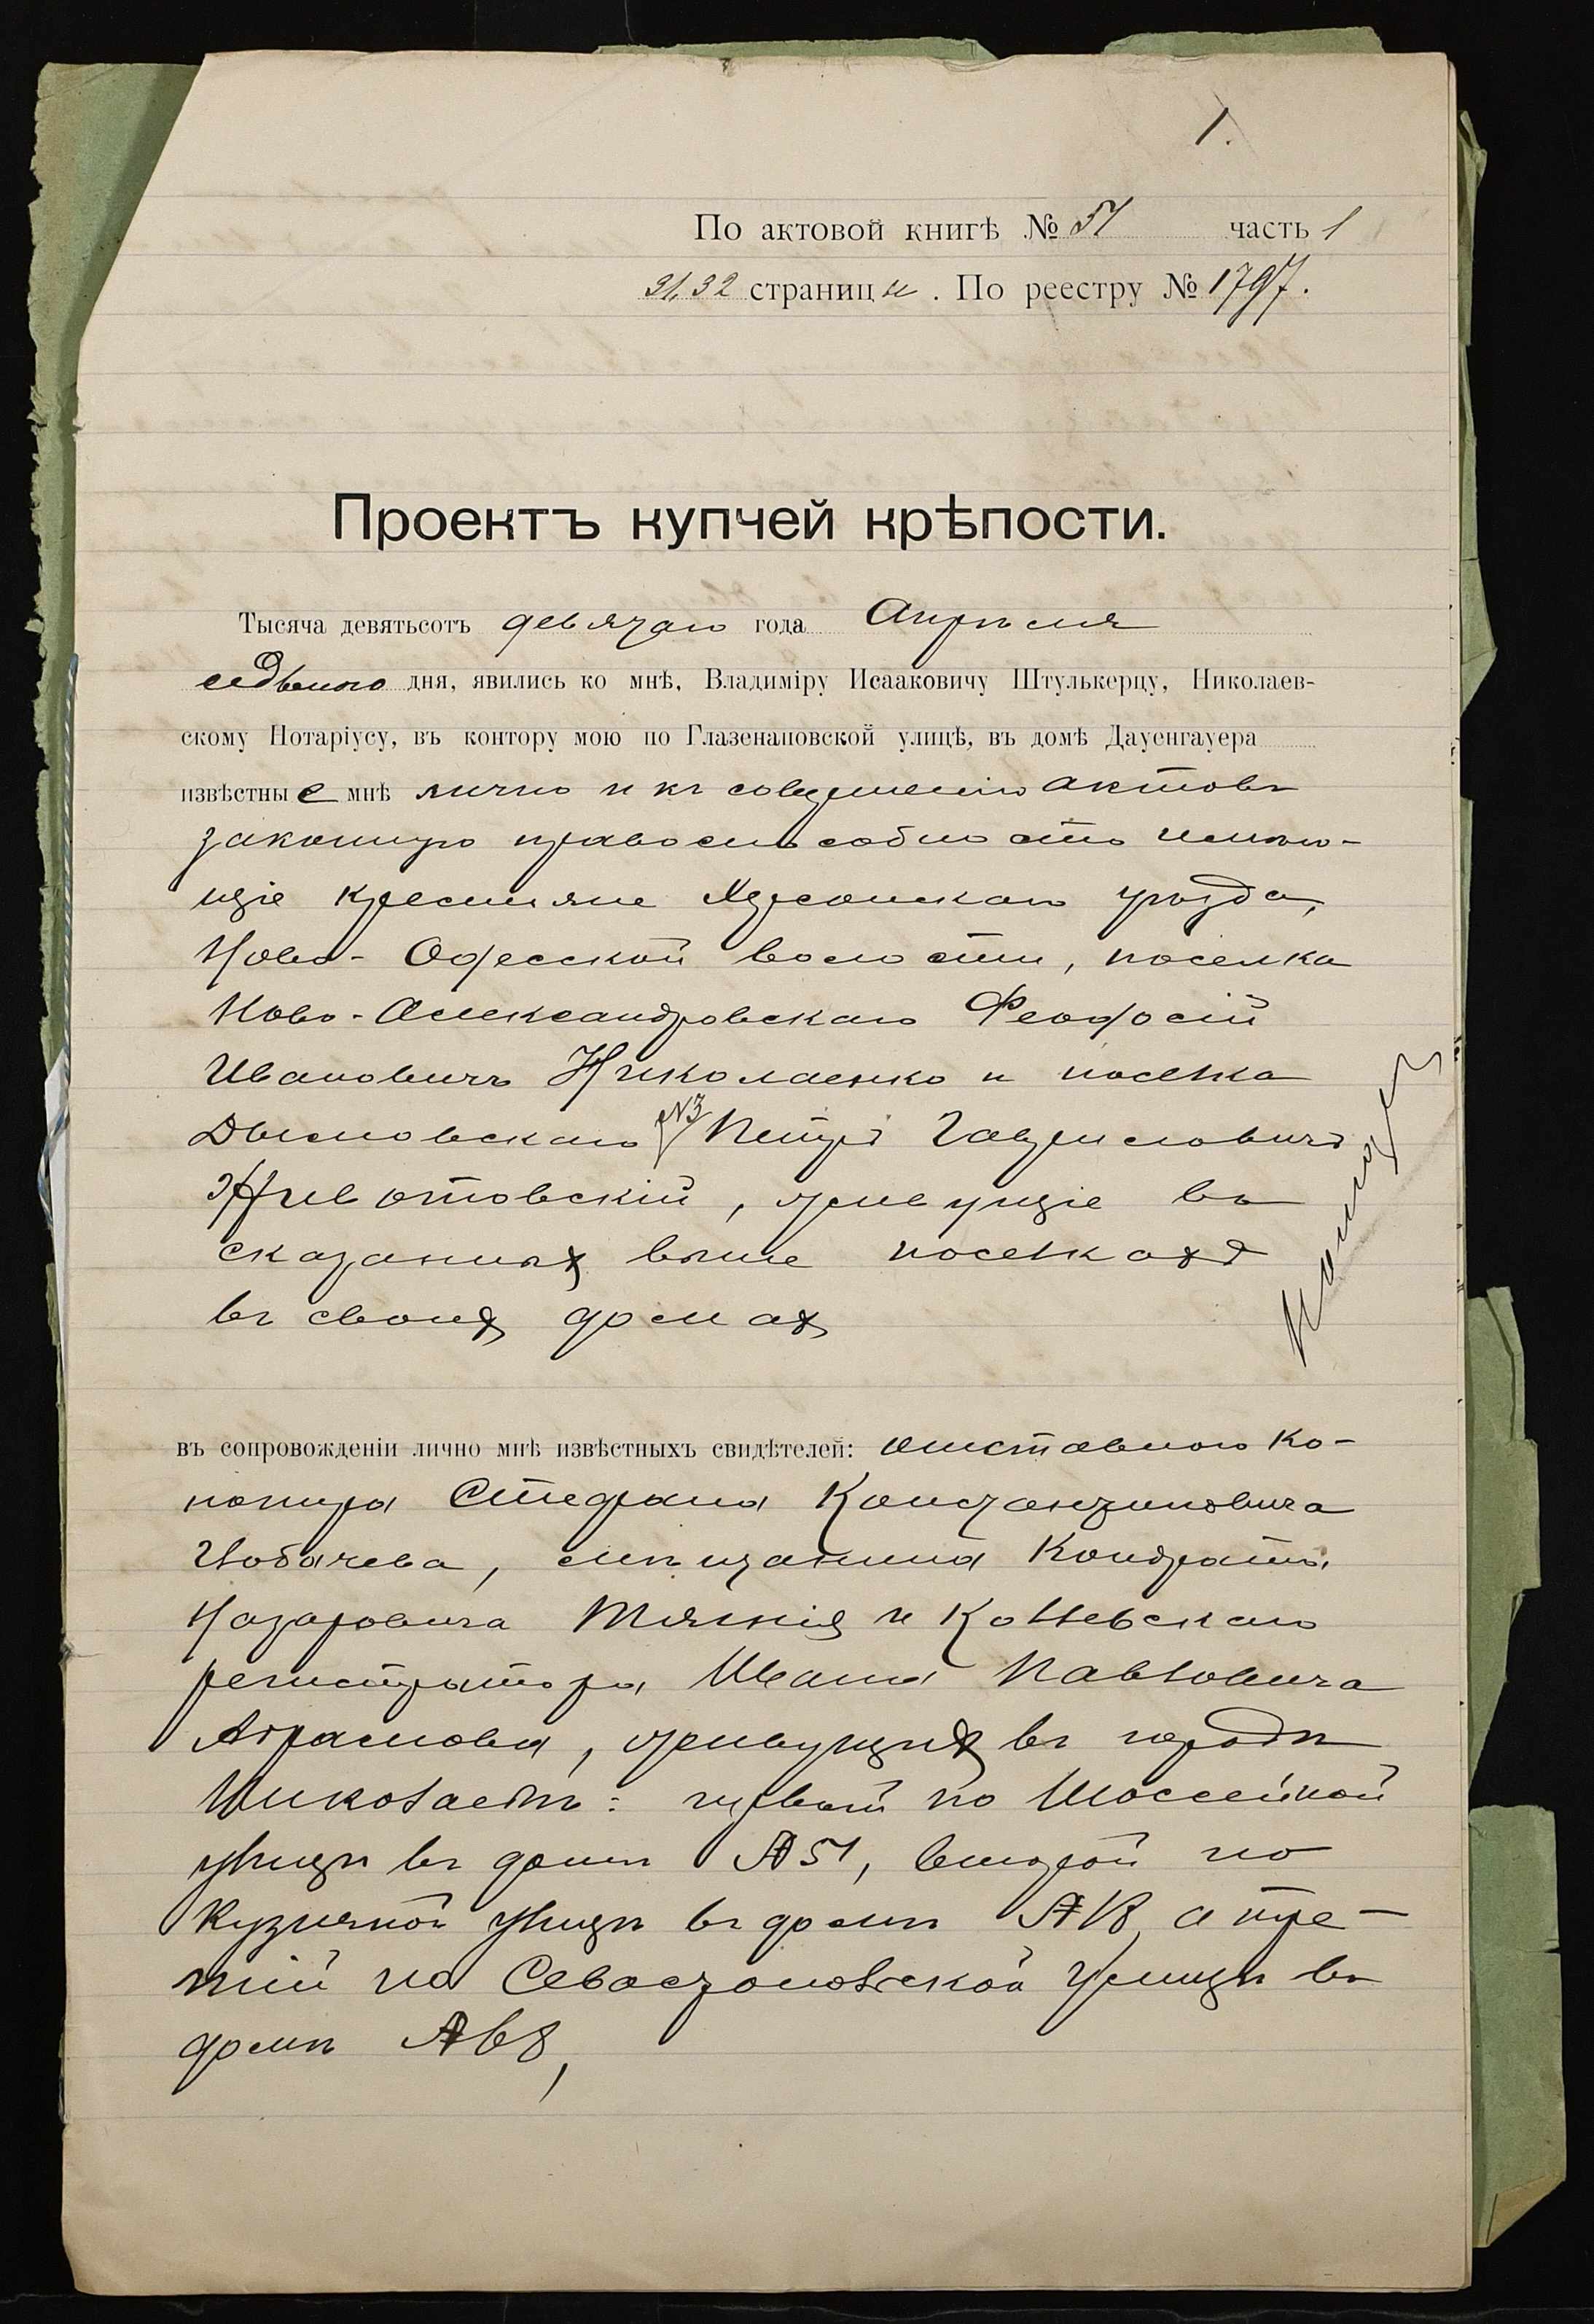 1.
По актовой книгѣ № 51 часть 1
31,32 страницы. По реестру № 1797.
Проектъ купчей крѣпости.
Тысяча девятьсотъ девятаго года Апрѣля
седьмого дня, явились ко мнѣ, Владиміру Исааковичу Штулькерцу, Николаев-
скому Нотаріусу, въ контору мою по Глазенаповской улицѣ, въ домѣ Дауенгауера
извѣстные мнѣ лично и къ совершенію актовъ
законную правоспособность имѣю-
щіе крестьяне Херсонскаго уѣзда,
Ново-Одесской волости, поселка
Ново-Александровскаго Феодосій
Ивановичъ Николаенко и поселка
№3 Петръ Гавриловичъ
Животовскій, живущіе въ
сказанныхъ выше поселкахъ
въ своихъ домахъ
въ сопровожденіи лично мнѣ извѣстныхъ свидѣтелей: отставного
Стефана Константиновича
мѣщанина Кондрата
Назаровича и Коллежскаго
регистратора Ивана Павловича
Абрамова, живущихъ въ городѣ
Николаевѣ: первый по Шоссейной
улицѣ въ домѣ № 51, второй по
Кузнечной улицѣ въ домѣ а тре-
тій по Севастопольской улицѣ въ
домѣ